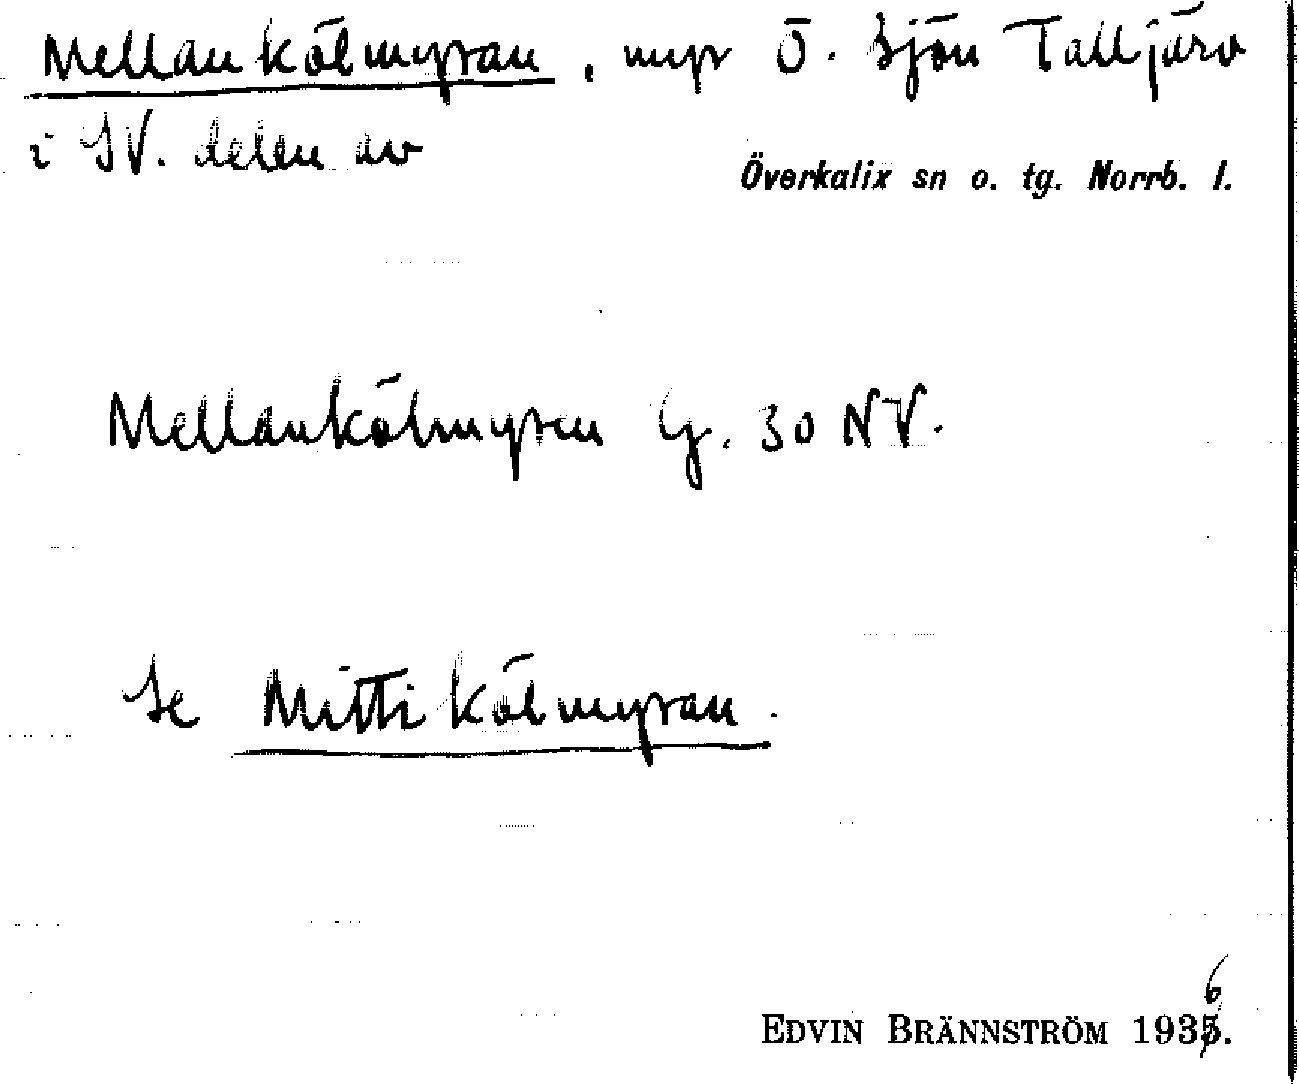 Mellankölmyran, myr Ö. Sjön Talljärv
i SV. delen av
Överkalix sn o. tg. Norrb. l.
Mellankölmyren G. 30 NV.
Se Mittikölmyran.
EDVIN BRÄNNSTRÖM 1936.